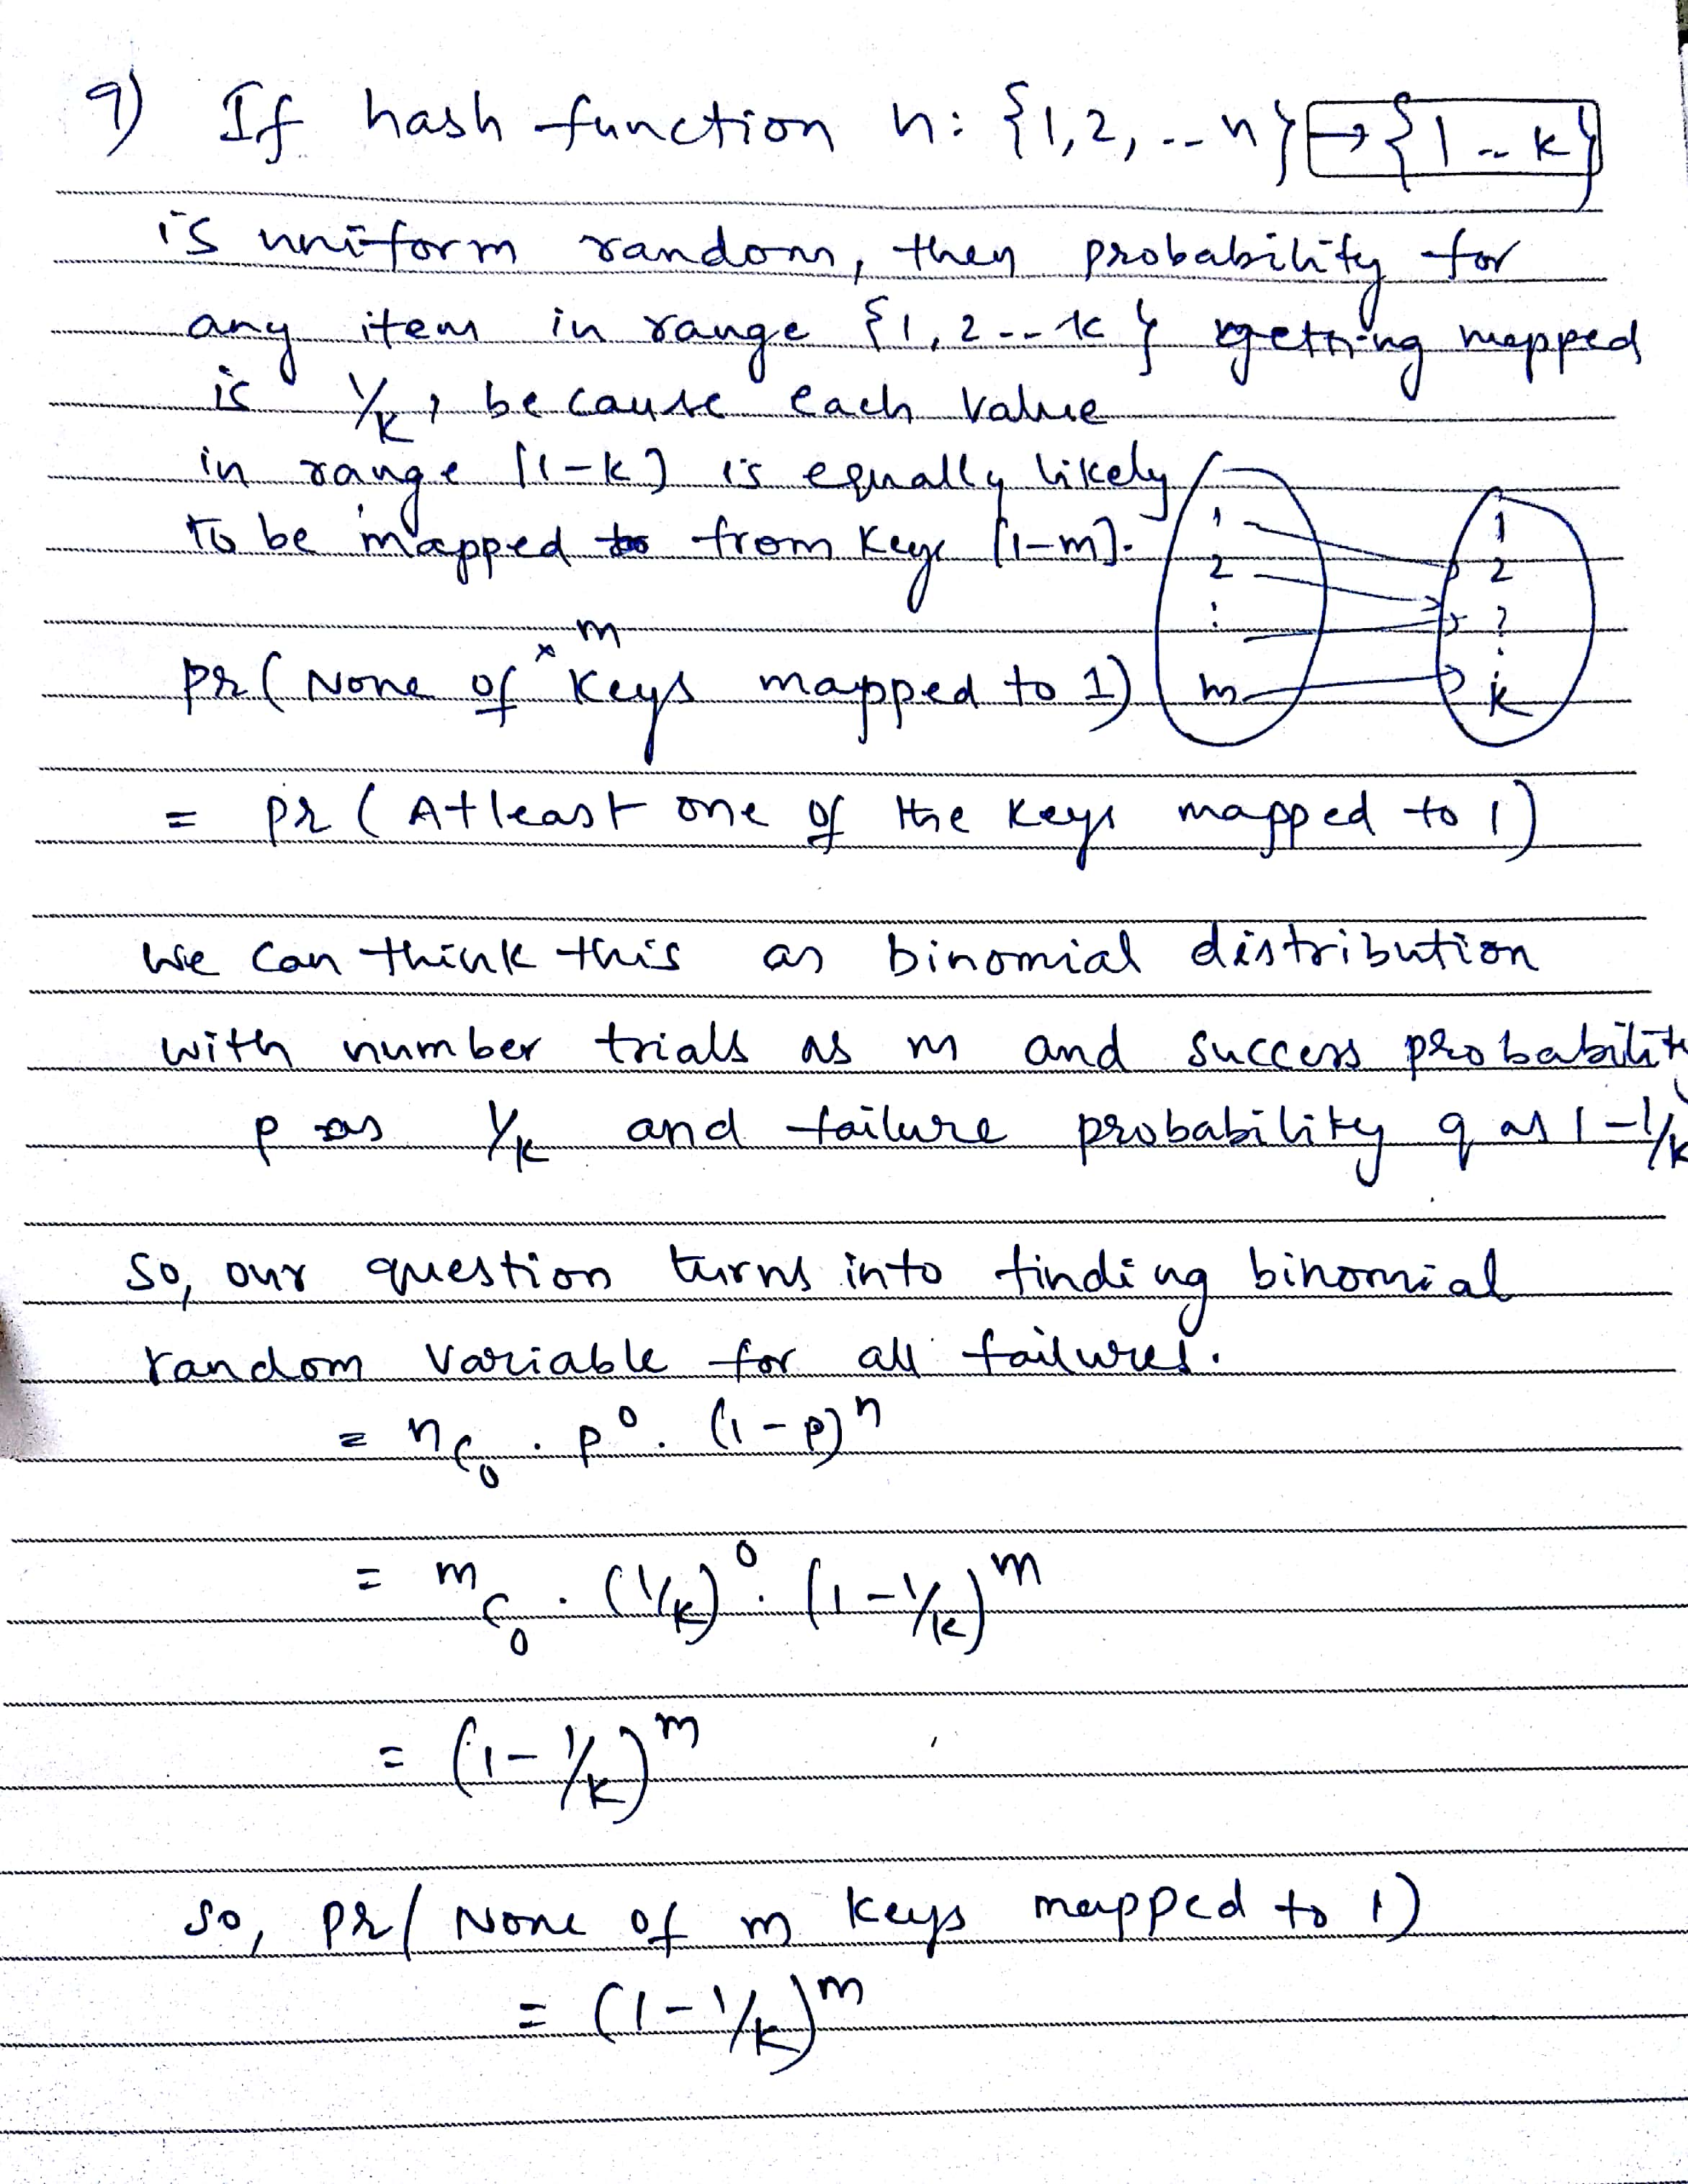 9) If hash function h: {1,2,..n} → {1..k}
is uniform random, then probability for
any item in range {1,2..k} getting mapped
is 1/k, because each value
in range [1-k] is equally likely
to be mapped to from keys [1-m].
1
2
:
m
1
2
?
:
k
Pr( None of m keys mapped to 1)
= Pr ( Atleast one of the keys mapped to 1)
We can think this as binomial distribution
with number trials as m and success probability
p as 1/k and failure probability q as 1-1/k
So, our question turns into finding binomial
random variable for all failures.
= nC0 . p^0 . (1-p)^n
= mC0 . (1/k)^0 . (1-1/k)^m
= (1-1/k)^m
So, Pr( None of m keys mapped to 1)
= (1-1/k)^m